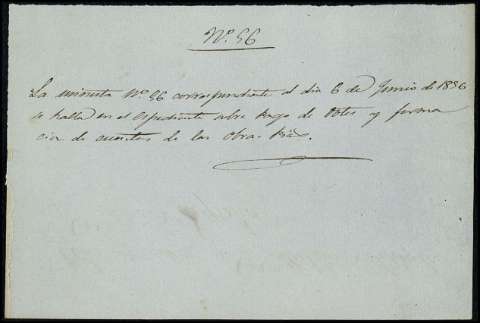 Nº. 56
La minuta Nº. 56 correspondiente al dia 6 de Junio de 1856
se halla en el espediente sobre pago de Dotes y forma
cion de cuentas de las Obras Pias.